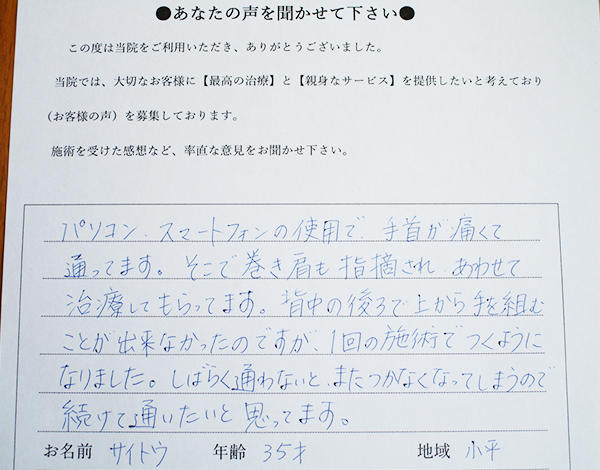 ●あなたの声を聞かせて下さい●
この度は当院をご利用いただき、ありがとうございました。
当院では、大切なお客様に【最高の治療】と【親身なサービス】を提供したいと考えており
（お客様の声）を募集しております。
施術を受けた感想など、率直な意見をお聞かせ下さい。
パソコン、スマートフォンの使用で、手首が痛くて
通ってます。そこで巻き肩も指摘され、あわせて
治療してもらってます。背中の後ろで上から手を組む
ことが出来なかったのですが、1回の施術でつくように
なりました。しばらく通わないと、またつかなくなってしまうので
続けて通いたいと思ってます。
お名前 サイトウ 年齢 35才 地域 小平